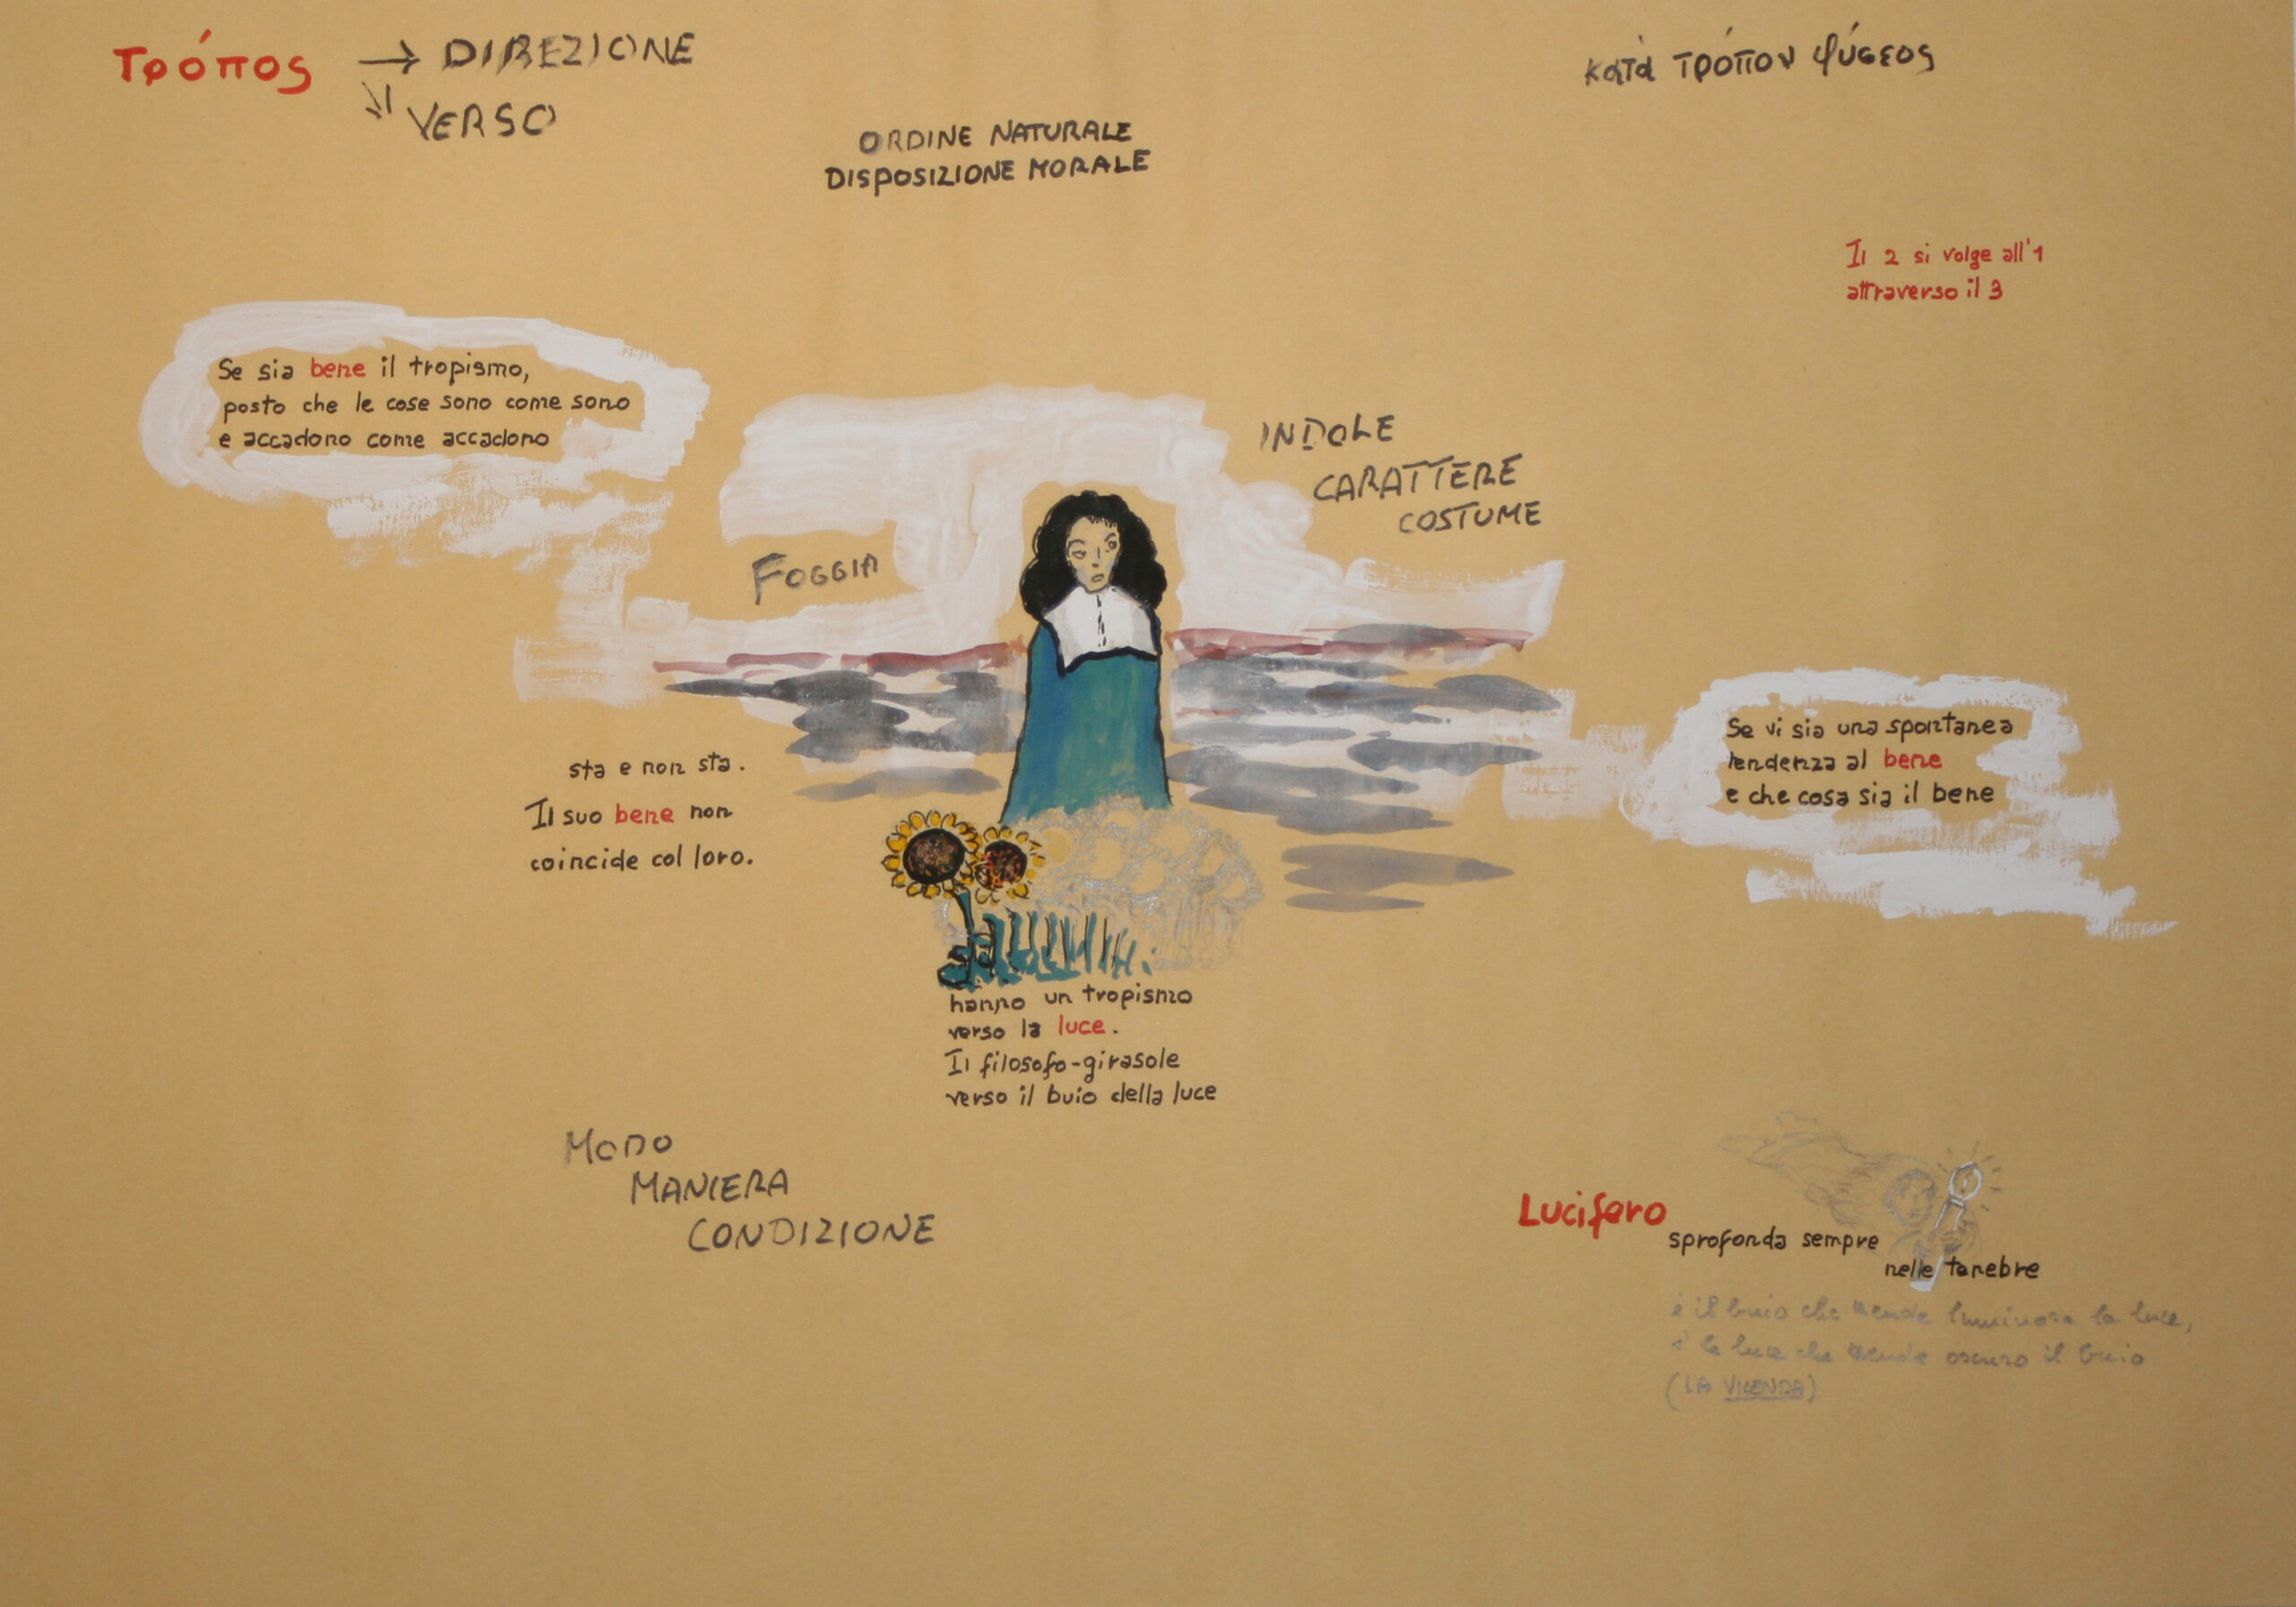 Τρόπος → DIREZIONE
VERSO
κατὰ τρόπον φύσεος
ORDINE NATURALE
DISPOSIZIONE MORALE
Il 2 si volge all'1
attraverso il 3
Se sia bene il tropismo,
posto che le cose sono come sono
e accadono come accadono
INDOLE
CARATTERE
COSTUME
FOGGIA
sta e non sta.
Il suo bene non
coincide col loro.
Se vi sia una spontanea
tendenza al bene
e che cosa sia il bene
hanno un tropismo
verso la luce.
Il filosofo-girasole
verso il buio della luce
MODO
MANIERA
CONDIZIONE
Lucifero
sprofonda sempre
nelle tenebre
è il buio che rende luminosa la luce,
è la luce che rende oscuro il buio
(LA VICENDA)